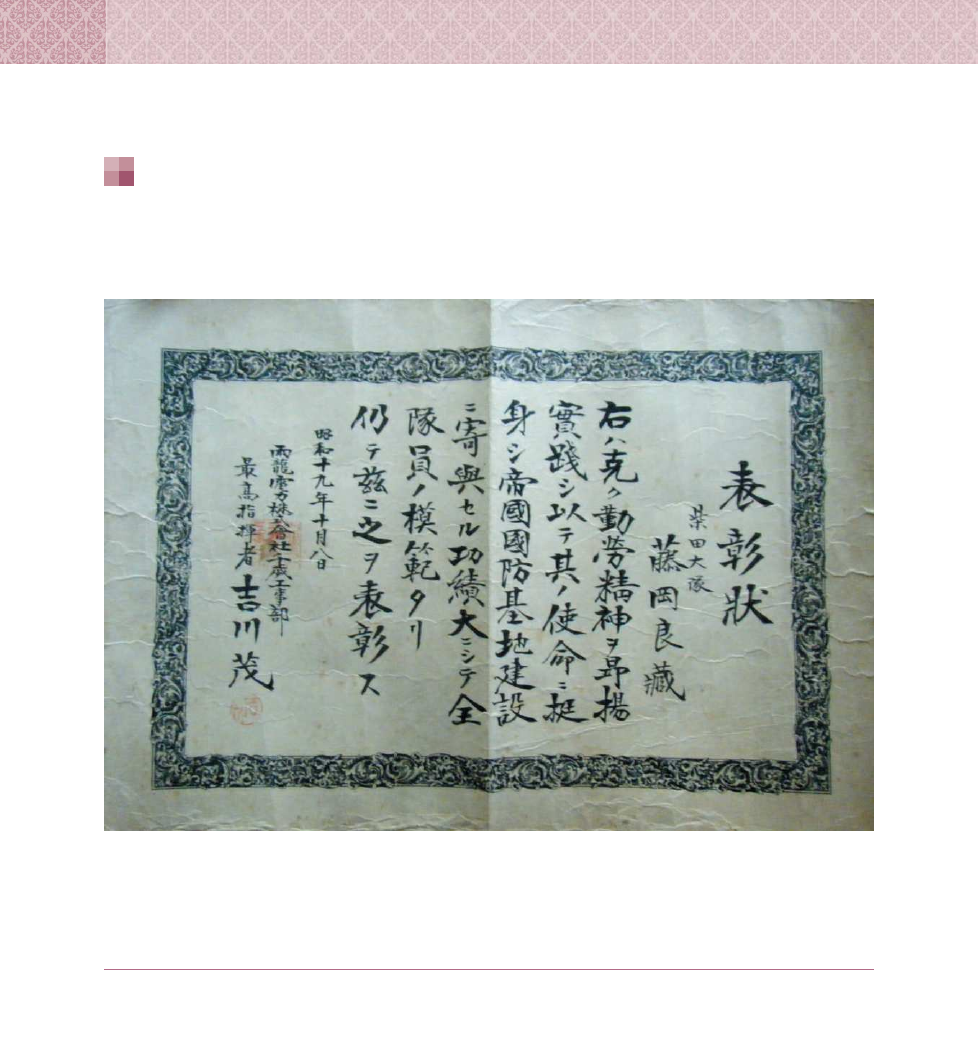 表彰狀
柴田大隊
藤岡良藏
右ハ克ク勤勞精神ヲ昂揚
實踐シ以テ其ノ使命ニ挺
身シ帝國國防基地建設
ニ寄與セル功績大ニシテ全
隊員ノ模範タリ
仍テ茲ニ之ヲ表彰ス
昭和十九年十月八日
雨龍電力株式會社千歲工事部
最高指揮者吉川茂